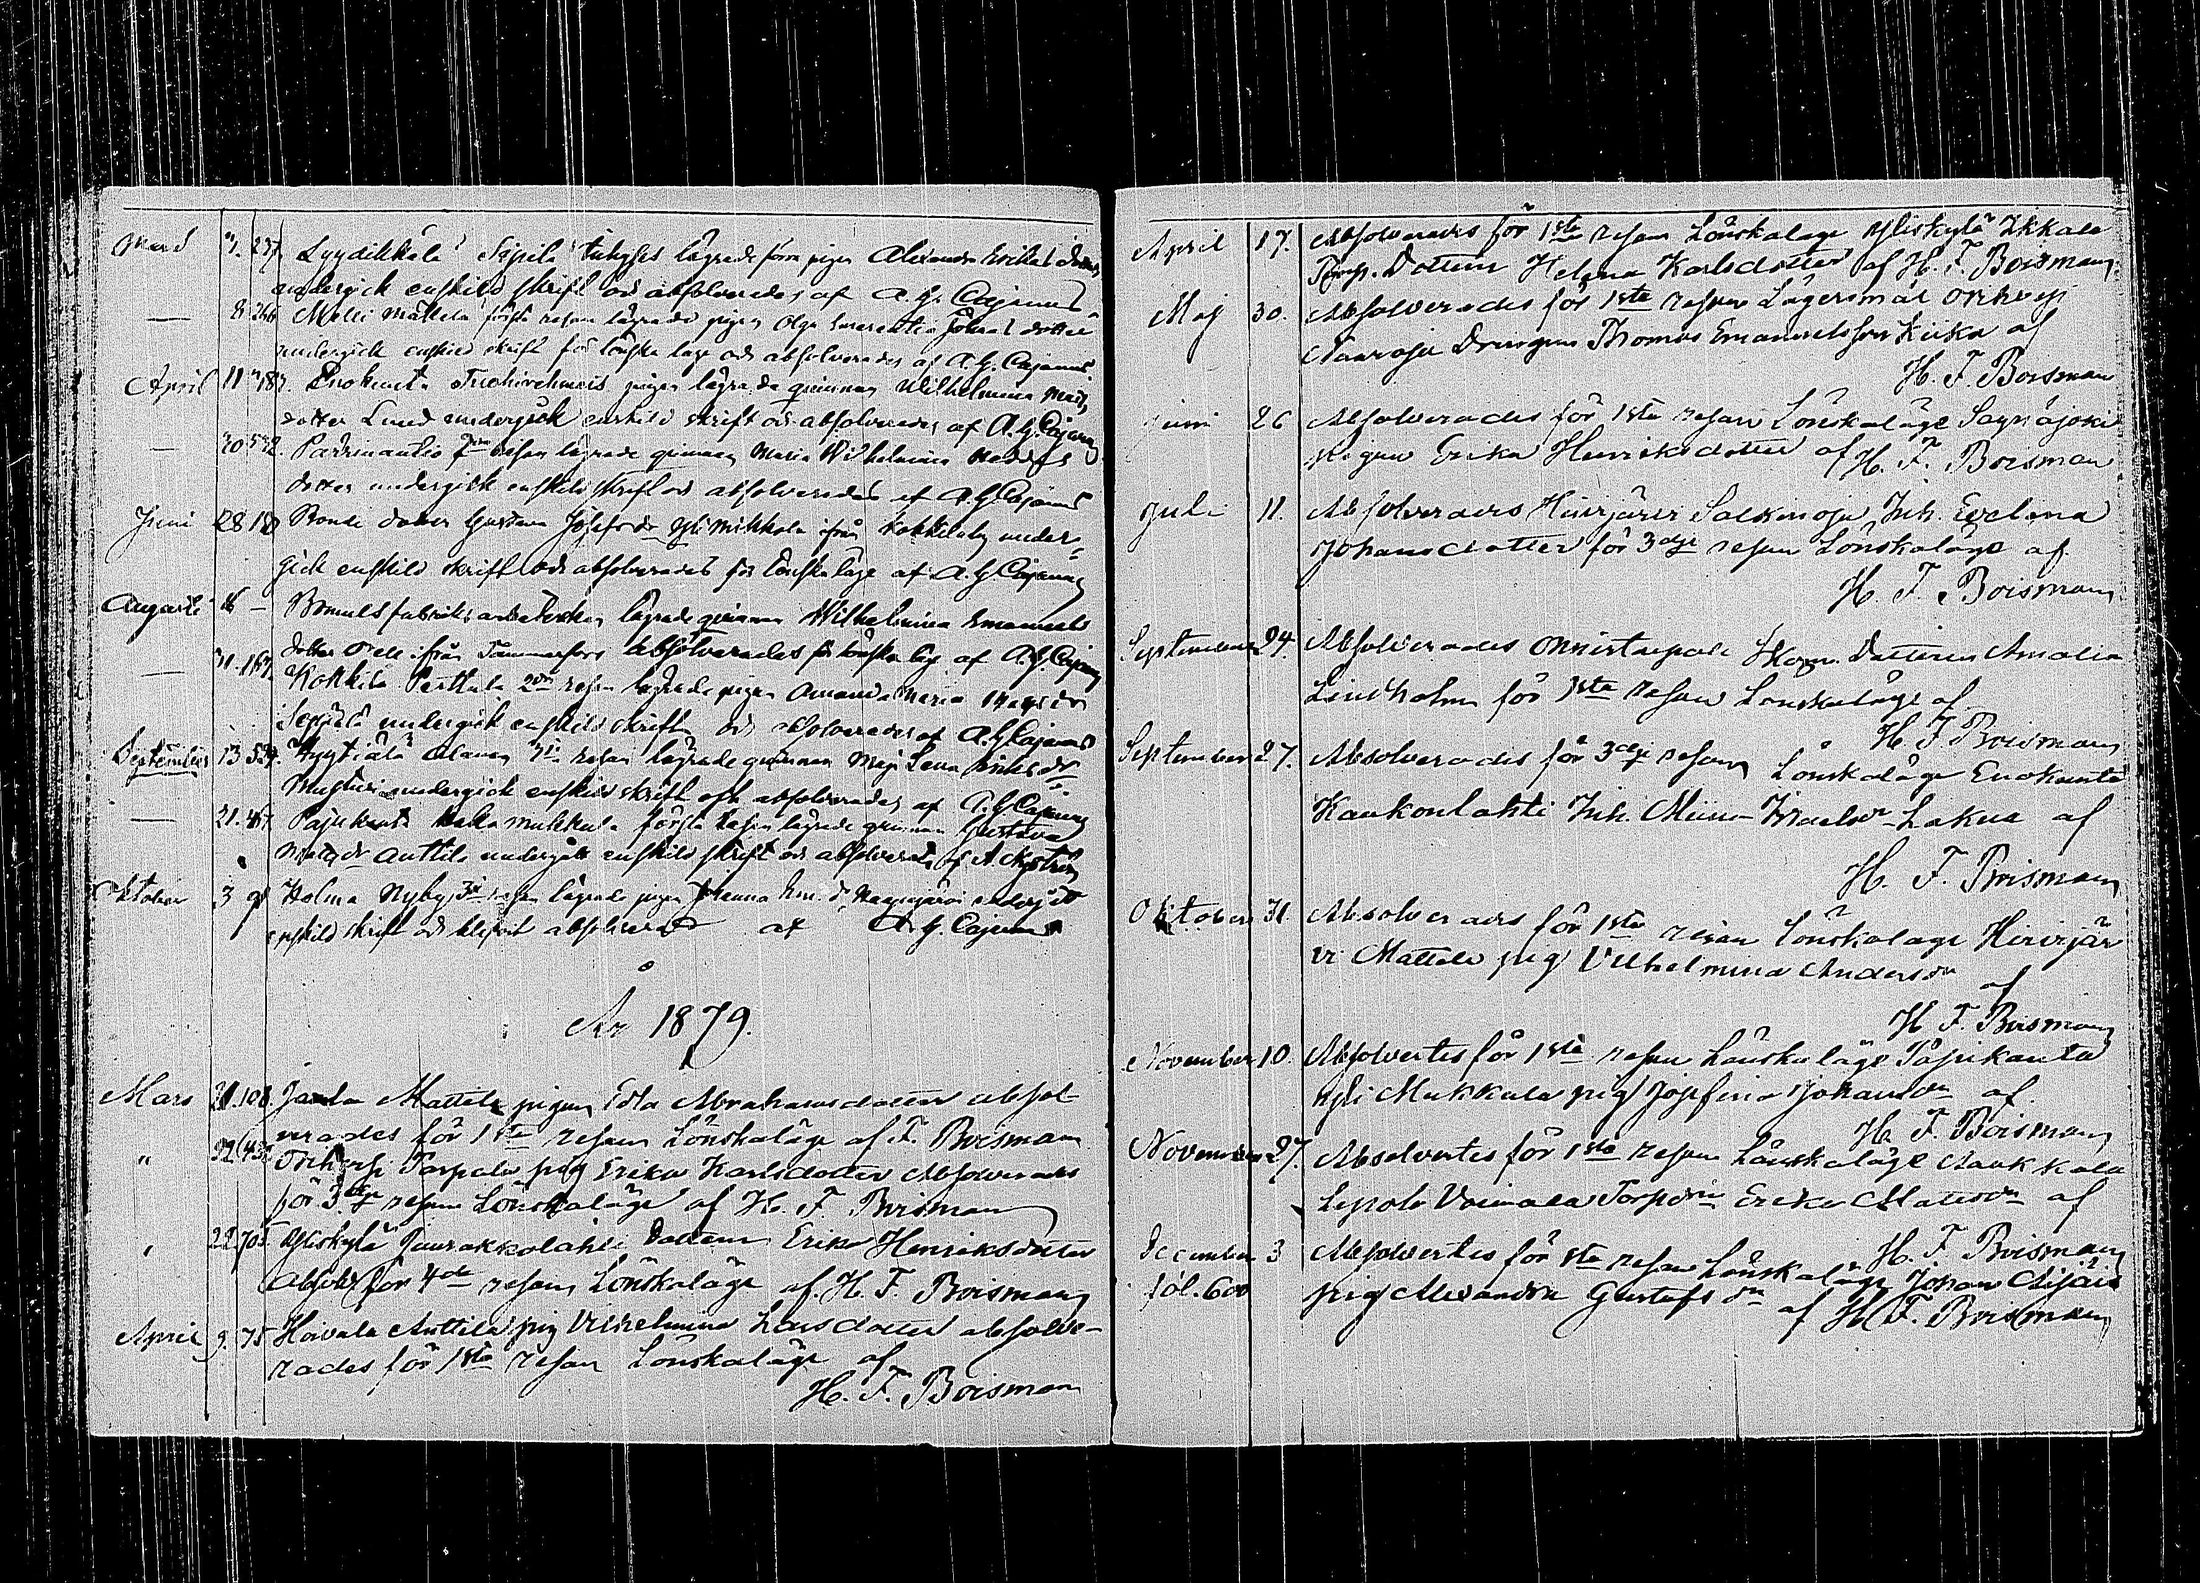 Mars 7. 237. Lyydikkälä Seppilä lägrade pigan Alexandra Eriksdotter
undergick enskild skrift och absolverades af A. G. Cajanus
— 8 266 Melli Mattela första resan lägrade pigan Olga Emerentia Johansdotter
undergick enskild skrift för lönskaläge och absolverades af A. G. Cajanus.
April 11 787. Enokunta pigan lägrade qvinnan Wilhelmina Matts
dotter Lund undergick enskild skrift och absolverades af A. G. Cajanus
— 30 532. resan lägrade qvinnan Maria Wilhelmina
dotter undergick enskild skrift och absolverades af A. G. Cajanus
Juni 28 Bonde dotter Gustava Josefsdr Yli Mikkola ifrån Kokkilaby under-
gick enskild skrift och absolverades för lönskaläge af A. G. Cajanus
Augusti 16 — Bomullsfabriks arbeterskan lägrade qvinnan Wilhelmina Emanuels
dotter ifrån Tammerfors absolverades för lönskaläge af A. G. Cajanus
— 31. 167. Kokkila Perttula 2dra resan lägrade pigan Amanda Maria
Seppälä undergick enskild skrift och absolverades af A. G. Cajanus
September 13 534. Hyytiälä resan lägrade qvinnan Maja Lena
undergick enskild skrift och absolverades af A. G. Cajanus
— 21. 467 Pajukanta Mukkula första resan lägrade qvinnan Gustava
Anttila undergått enskild skrift och absolverats af A. Nyström
Oktober 3 Holma Nyby 3dje resan lägrade pigan Johanna undergått
enskild skrift och blifvit absolverad af A. G. Cajanus
År 1879.
Mars 21. 108. Mattila pigan Edla Abrahamsdotter absol-
verades för 1sta resan Lönskaläge af F. Boisman
" 22. 432. Orihvesi Parpala pig Erika Karlsdotter Absolverades
för 3dje resan Lönskaläge af H. F. Boisman
" 22. 705. Yliskylä Juurakkolahti Dottern Erika Henriksdotter
absolv. för 4de resan Lönskaläge af H. F. Boisman
April 9. 75 Koivula Anttila pig Vilhelmina Larsdotter absolve-
rades för 1sta resan Lönskaläge af
H. F. Boisman
April 17. Absolverades för 1sta resan Lönskaläge Yliskylä Ikkala
Torp. Dottern Helena Karlsdotter af H. F. Boisman
Maj 30. Absolverades för 1sta resan Lägersmål Orihvesi
Naaraja Drängen Thomas Emanuelsson Kiika af
H. F. Boisman
Juni 26 Absolverades för 1sta resan Lönskaläge Säynäjoki
pigan Erika Henriksdotter af H. F. Boisman
Juli 11. Absolverades Hirvijärvi Salkinoja Inh. Evelina
Johansdotter för 3dje resan Lönskaläge af
H. F. Boisman
September 24. Absolverades Onnistaipale Skom. Dottern Amalia
Lindholm för 1sta resan Lönskaläge af
H. F. Boisman
September 27. Absolverades för 3dje resan Lönskaläge Enokunta
Kaukonlahti Inh. Miina Israelsdr Lakua af
H. F. Boisman
Oktober 31. Absolverades för 1sta resan Lönskaläge Hirvijär
vi Mattela pig Vilhelmina Andersdr
af
H. F. Boisman
November 10. Absolvertes för 1sta resan Lönskaläge Pajukanta
Yli Mukkala pig Josefina Johansdr af
H. F. Boisman
November 27. Absolvertes för 1sta resan Lönskaläge Naukkala
Leppolä Voimala Torpdr Erika Mattsdr af
H. F. Boisman
December 3 Absolvertes för 1sta resan Lönskaläge Johan Äijälä
fol. 600 pig Alexandra Gustafsdr af H. F. Boisman